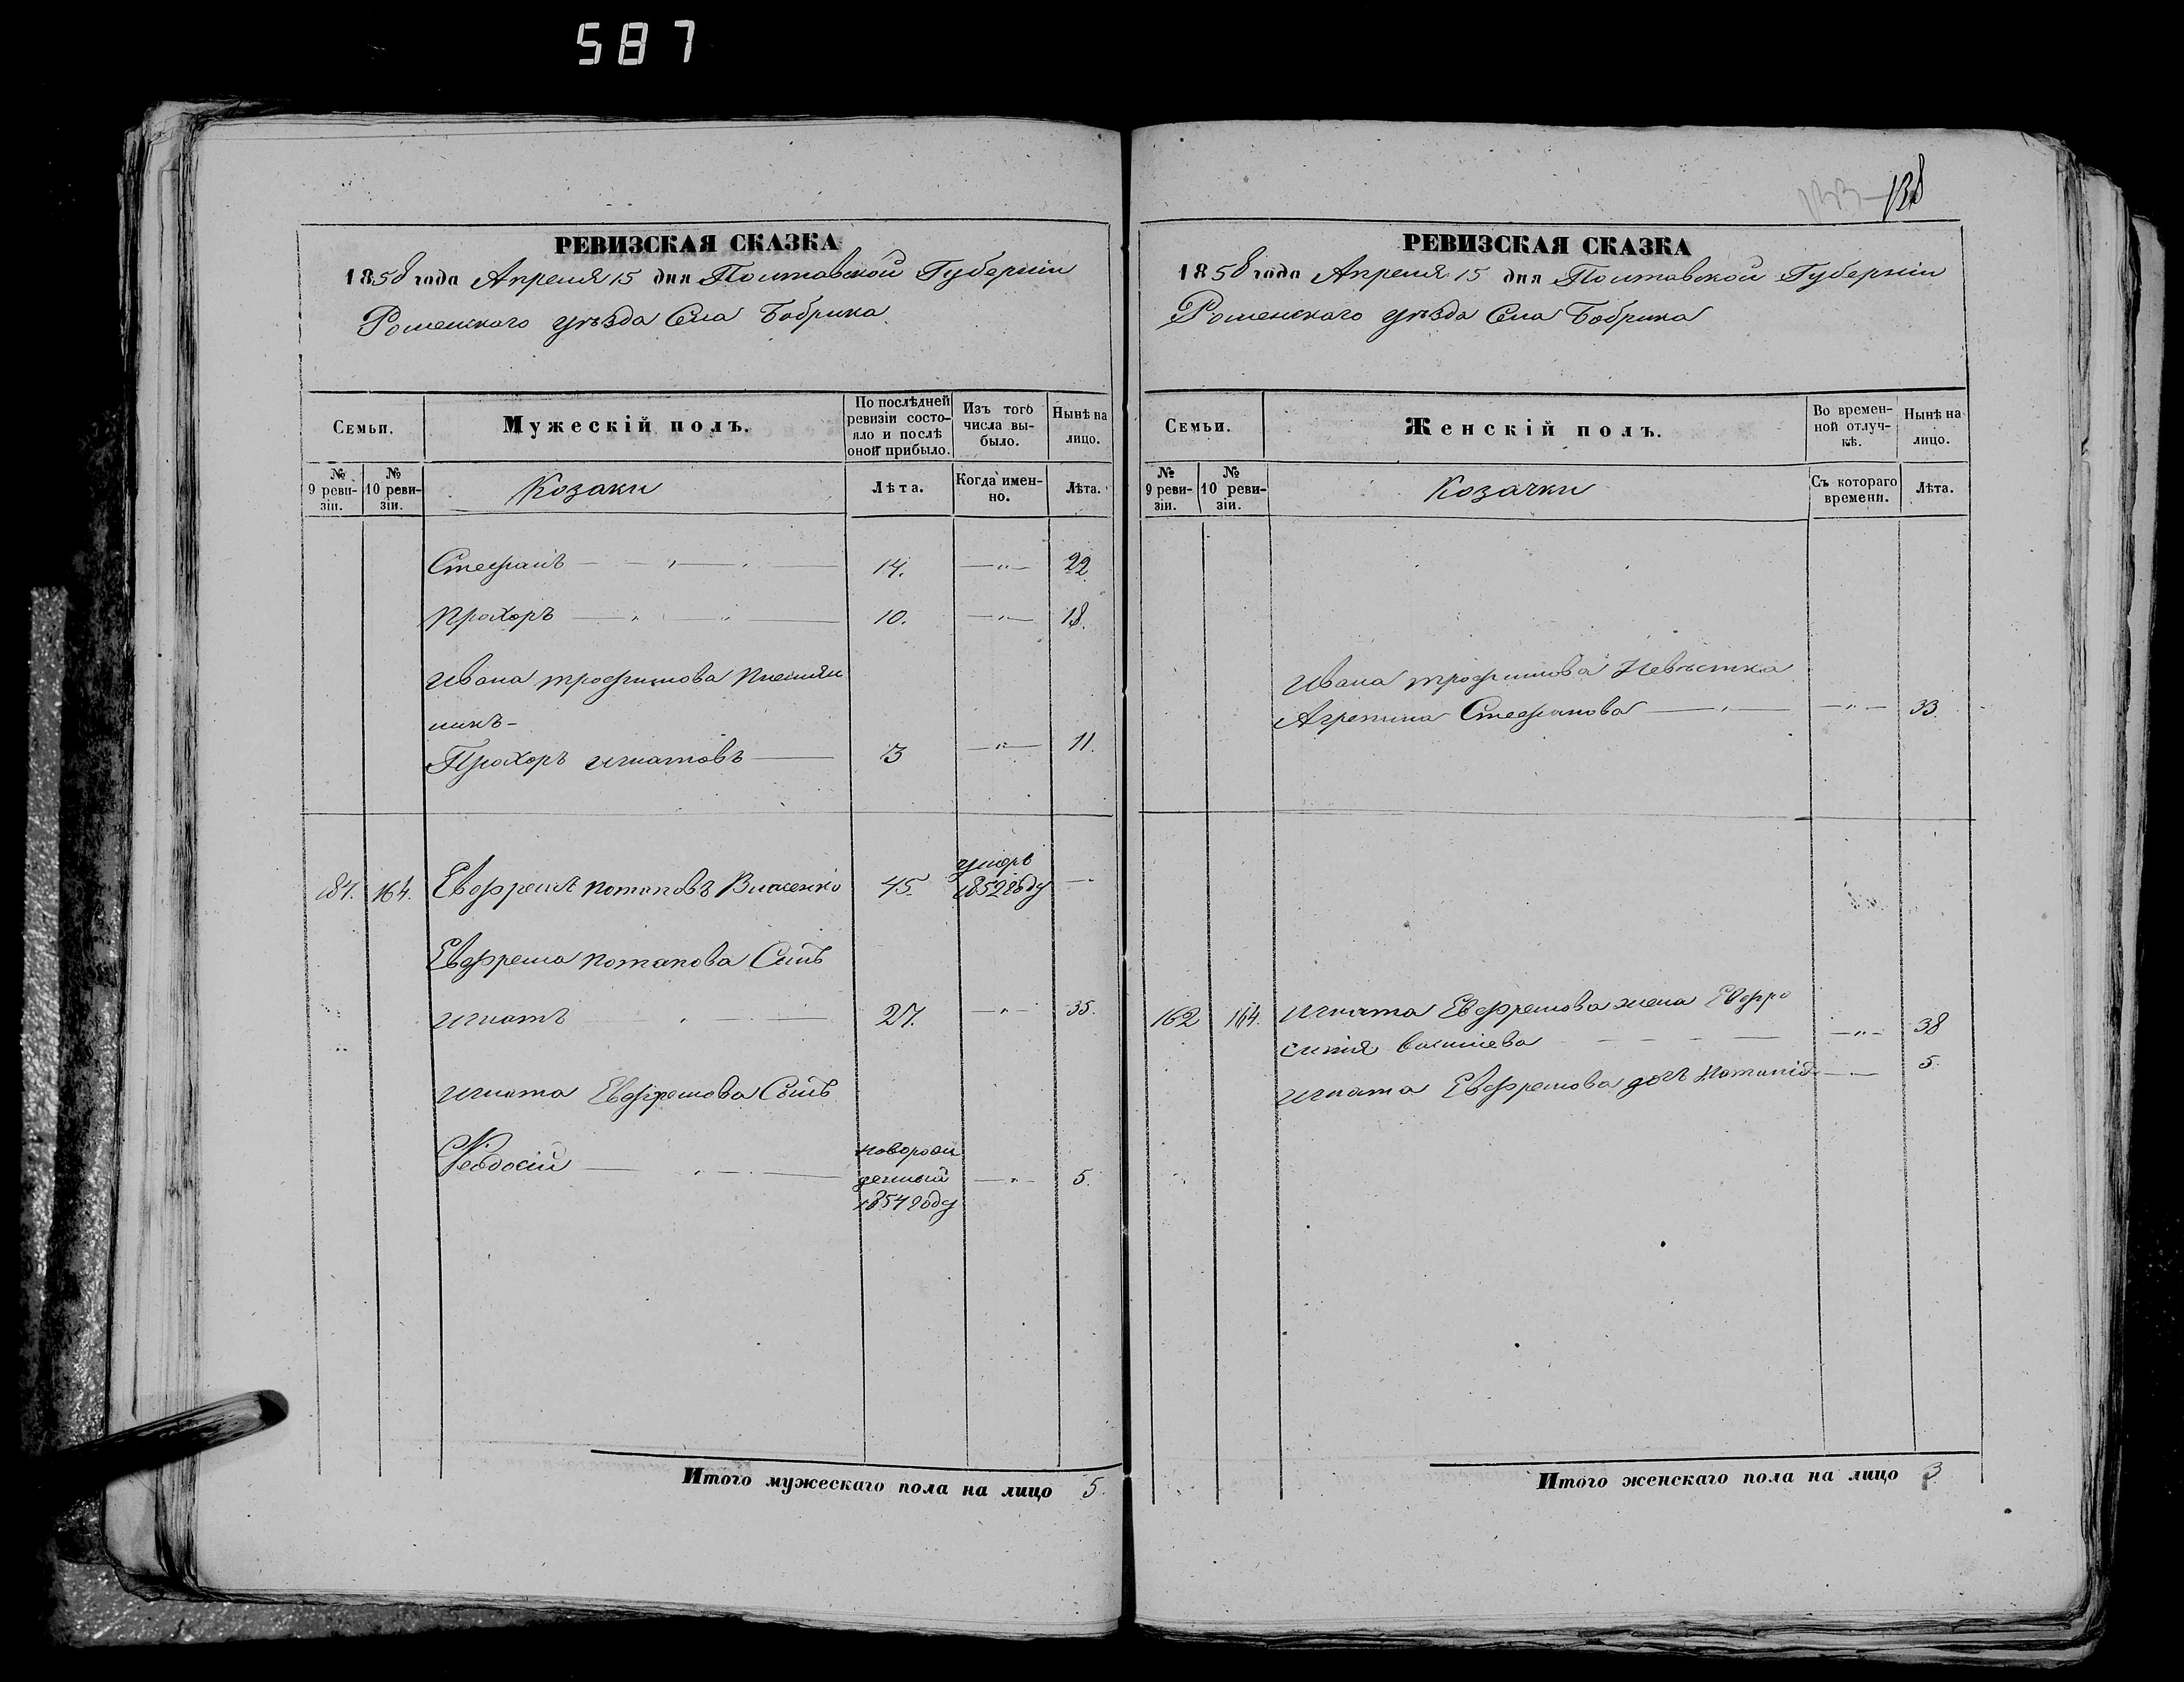 587
138
РЕВИЗСКАЯ СКАЗКА
1858 года Апреля 15 дня Полтавской Губерніи
Роменскаго уѣзда Села Бобрика
Семьи.
Мужескій полъ.
По послѣдней ревизіи состояло и послѣ оной прибыло.
Изъ того числа выбыло.
Нынѣ на лицо.
№ 9 ревизіи.
№ 10 ревизіи.
Козаки
Лѣта.
Когда именно.
Лѣта.
Стефанъ 14. 22
Прохоръ 10. 18.
Ивана трофимова племян
никъ
Прохоръ игнатовъ 3 11.
умеръ
187. 164. Евфремъ потаповъ Власенко 45. 1852 году
Евфрема потапова Сынъ
игнатъ 27. 35.
игната Евфремова Сынъ
Феодосій новорож
денный 5.
1854 году
Итого мужескаго пола на лицо 5.
РЕВИЗСКАЯ СКАЗКА
1858 года Апреля 15 дня Полтавской Губерніи
Роменскаго уѣзда Села Бобрика
Семьи.
Женскій полъ.
Во временной отлучкѣ.
Нынѣ на лицо.
№ 9 ревизіи.
№ 10 ревизіи.
Козачки
Съ котораго времени.
Лѣта.
Ивана трофимова Невѣстка
Агрепина Стефанова 33.
162 164. Игната Евфремова жена Евфро
синія василиева 38
игната Евфремова дочь 5.
Итого женскаго пола на лицо 3.